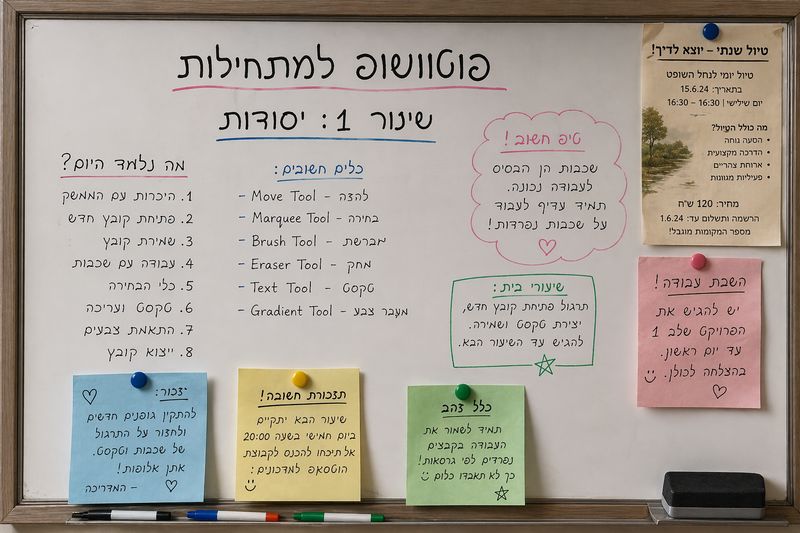 פוטוושופ למתחילות
שינור 1: יסודות
מה נלמד היום?
1. היכרות עם הממשק
2. פתיחת קובץ חדש
3. שמירת קובץ
4. עבודה עם שכבות
5. כלי הבחירה
6. טקסט ועריכה
7. התאמת צבעים
8. ייצוא קובץ
כלים חשובים:
- Move Tool - להצה
- Marquee Tool - בחירה
- Brush Tool - מברשת
- Eraser Tool - מחק
- Text Tool - טקסט
- Gradient Tool - מעבר צבע
טיפ חשוב!
שכבות הן הבסיס
לעבודה נכונה.
תמיד עדיף לעבוד
על שכבות נפרדות!
שיעורי בית:
תרגול פתיחת קובץ חדש,
יצירת טקסט ושמירה.
להגיש עד השיעור הבא.
טיול שנתי – יוצא לדיך!
טיול יומי לנחל השופט
בתאריך: 15.6.24
יום שלישי | 16:30 – 16:30
מה כולל הטיול?
• הסעה נוחה
• הדרכה מקצועית
• ארוחת צהריים
• פעילויות מגוונות
מחיר: 120 ש"ח
הרשמה ותשלום עד: 1.6.24
מספר המקומות מוגבל!
השבת עבודה!
יש להגיש את
הפרויקט שלב 1
עד יום ראשון.
בהצלחה לכולן.
להתקין גופנים חדשים
ולחזור על התרגול
של שכבות וטקסט.
אתן אלופות!
– המדריכה
תזכורת חשובה!
שיעור הבא יתקיים
ביום חמישי בשעה 20:00
אל תיכחו להכנס לקבוצת
הווטסאפ למדכונים:
כלל צהב
תמיד לשמור את
העבודה בקבצים
נפרדים לפי גרסאות!
כך לא תאבדו כלום